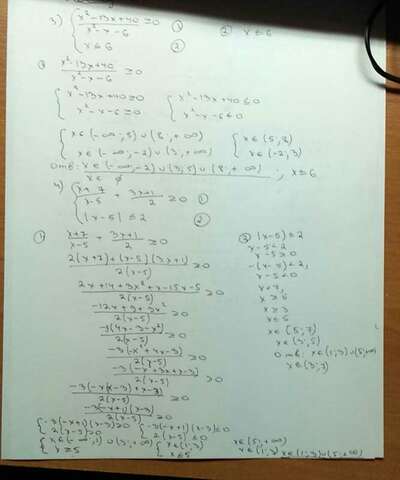 3) { x²-13x+40 / x²-x-6 ≥0 ①
x ≤ 6 ②
② x ≤ 6
x²-13x+40 / x²-x-6 ≥0
{ x²-13x+40≥0 { x²-13x+40≤0
x²-x-6≥0 x²-x-6≤0
{ x∈(-∞;5)∪(8;+∞) { x∈(5;8)
x∈(-∞;-2)∪(3;+∞) x∈(-2;3)
отв: x∈(-∞;-2)∪(3;5)∪(8;+∞) ; x≤6
x∈ ∅
4) { x+7 / x-5 + 3x+1 / 2 ≥0 ①
|x-5| ≤ 2 ②
① x+7 / x-5 + 3x+1 / 2 ≥0
2(x+7)+(x-5)(3x+1) / 2(x-5) ≥0
2x+14+3x²+x-15x-5 / 2(x-5) ≥0
-12x+9+3x² / 2(x-5) ≥0
-3(4x-3-x²) / 2(x-5) ≥0
-3(-x²+4x-3) / 2(x-5) ≥0
-3(-x²+3x+x-3) / 2(x-5) ≥0
-3(-x(x-3)+x-3) / 2(x-5) ≥0
-3(-x+1)(x-3) / 2(x-5) ≥0
{ -3(-x+1)(x-3)≥0 { -3(-x+1)(x-3)≤0
2(x-5)≥0 2(x-5)≤0
{ x∈(-∞;1)∪(3;+∞) { x∈(1;3)
x≥5 x≤5
x∈(5;+∞)
x∈(1;3) x∈(1;3)∪(5;+∞)
② |x-5| ≤2
x-5≤2
x-5≥0
-(x-5)≤2,
x-5<0
x≤7,
x≥5
x≥3
x≤5
x∈(5;7)
x∈(3;5)
отв: x∈(1;3)∪(5;+∞)
x∈(3;7)